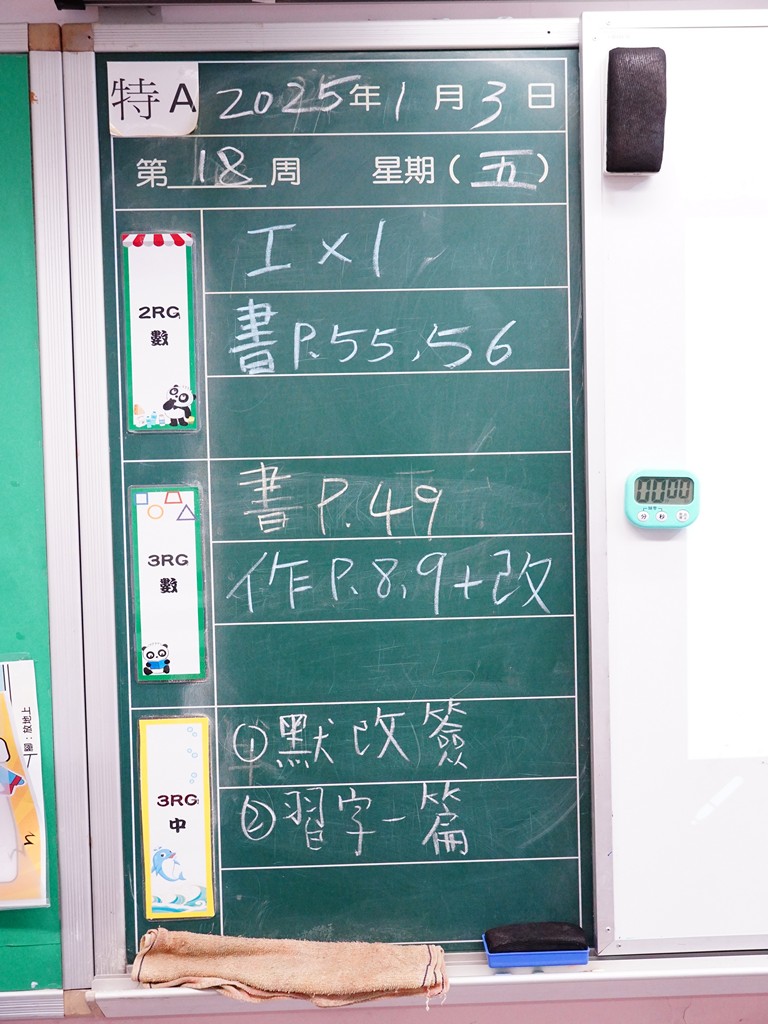 特A 2025年1月3日
第18周 星期(五)
2RG
數
工×1
書P.55,56
3RG
數
書P.49
作P.8,9+改
3RG
中
①默改簽
②習字一篇
00:00
分 秒
腳:放地上